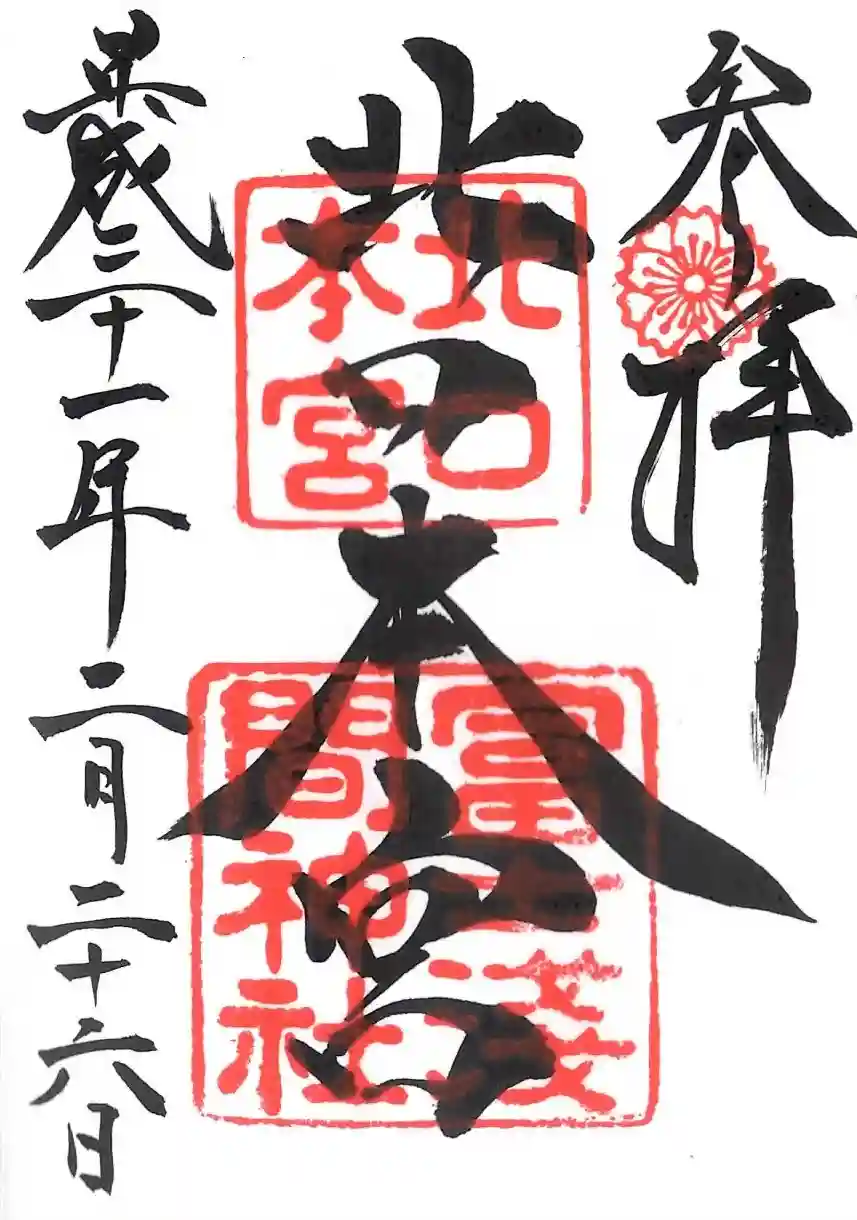 参拝
北口本宮
北口
本宮
富士浅
間神社
平成三十一年二月二十六日